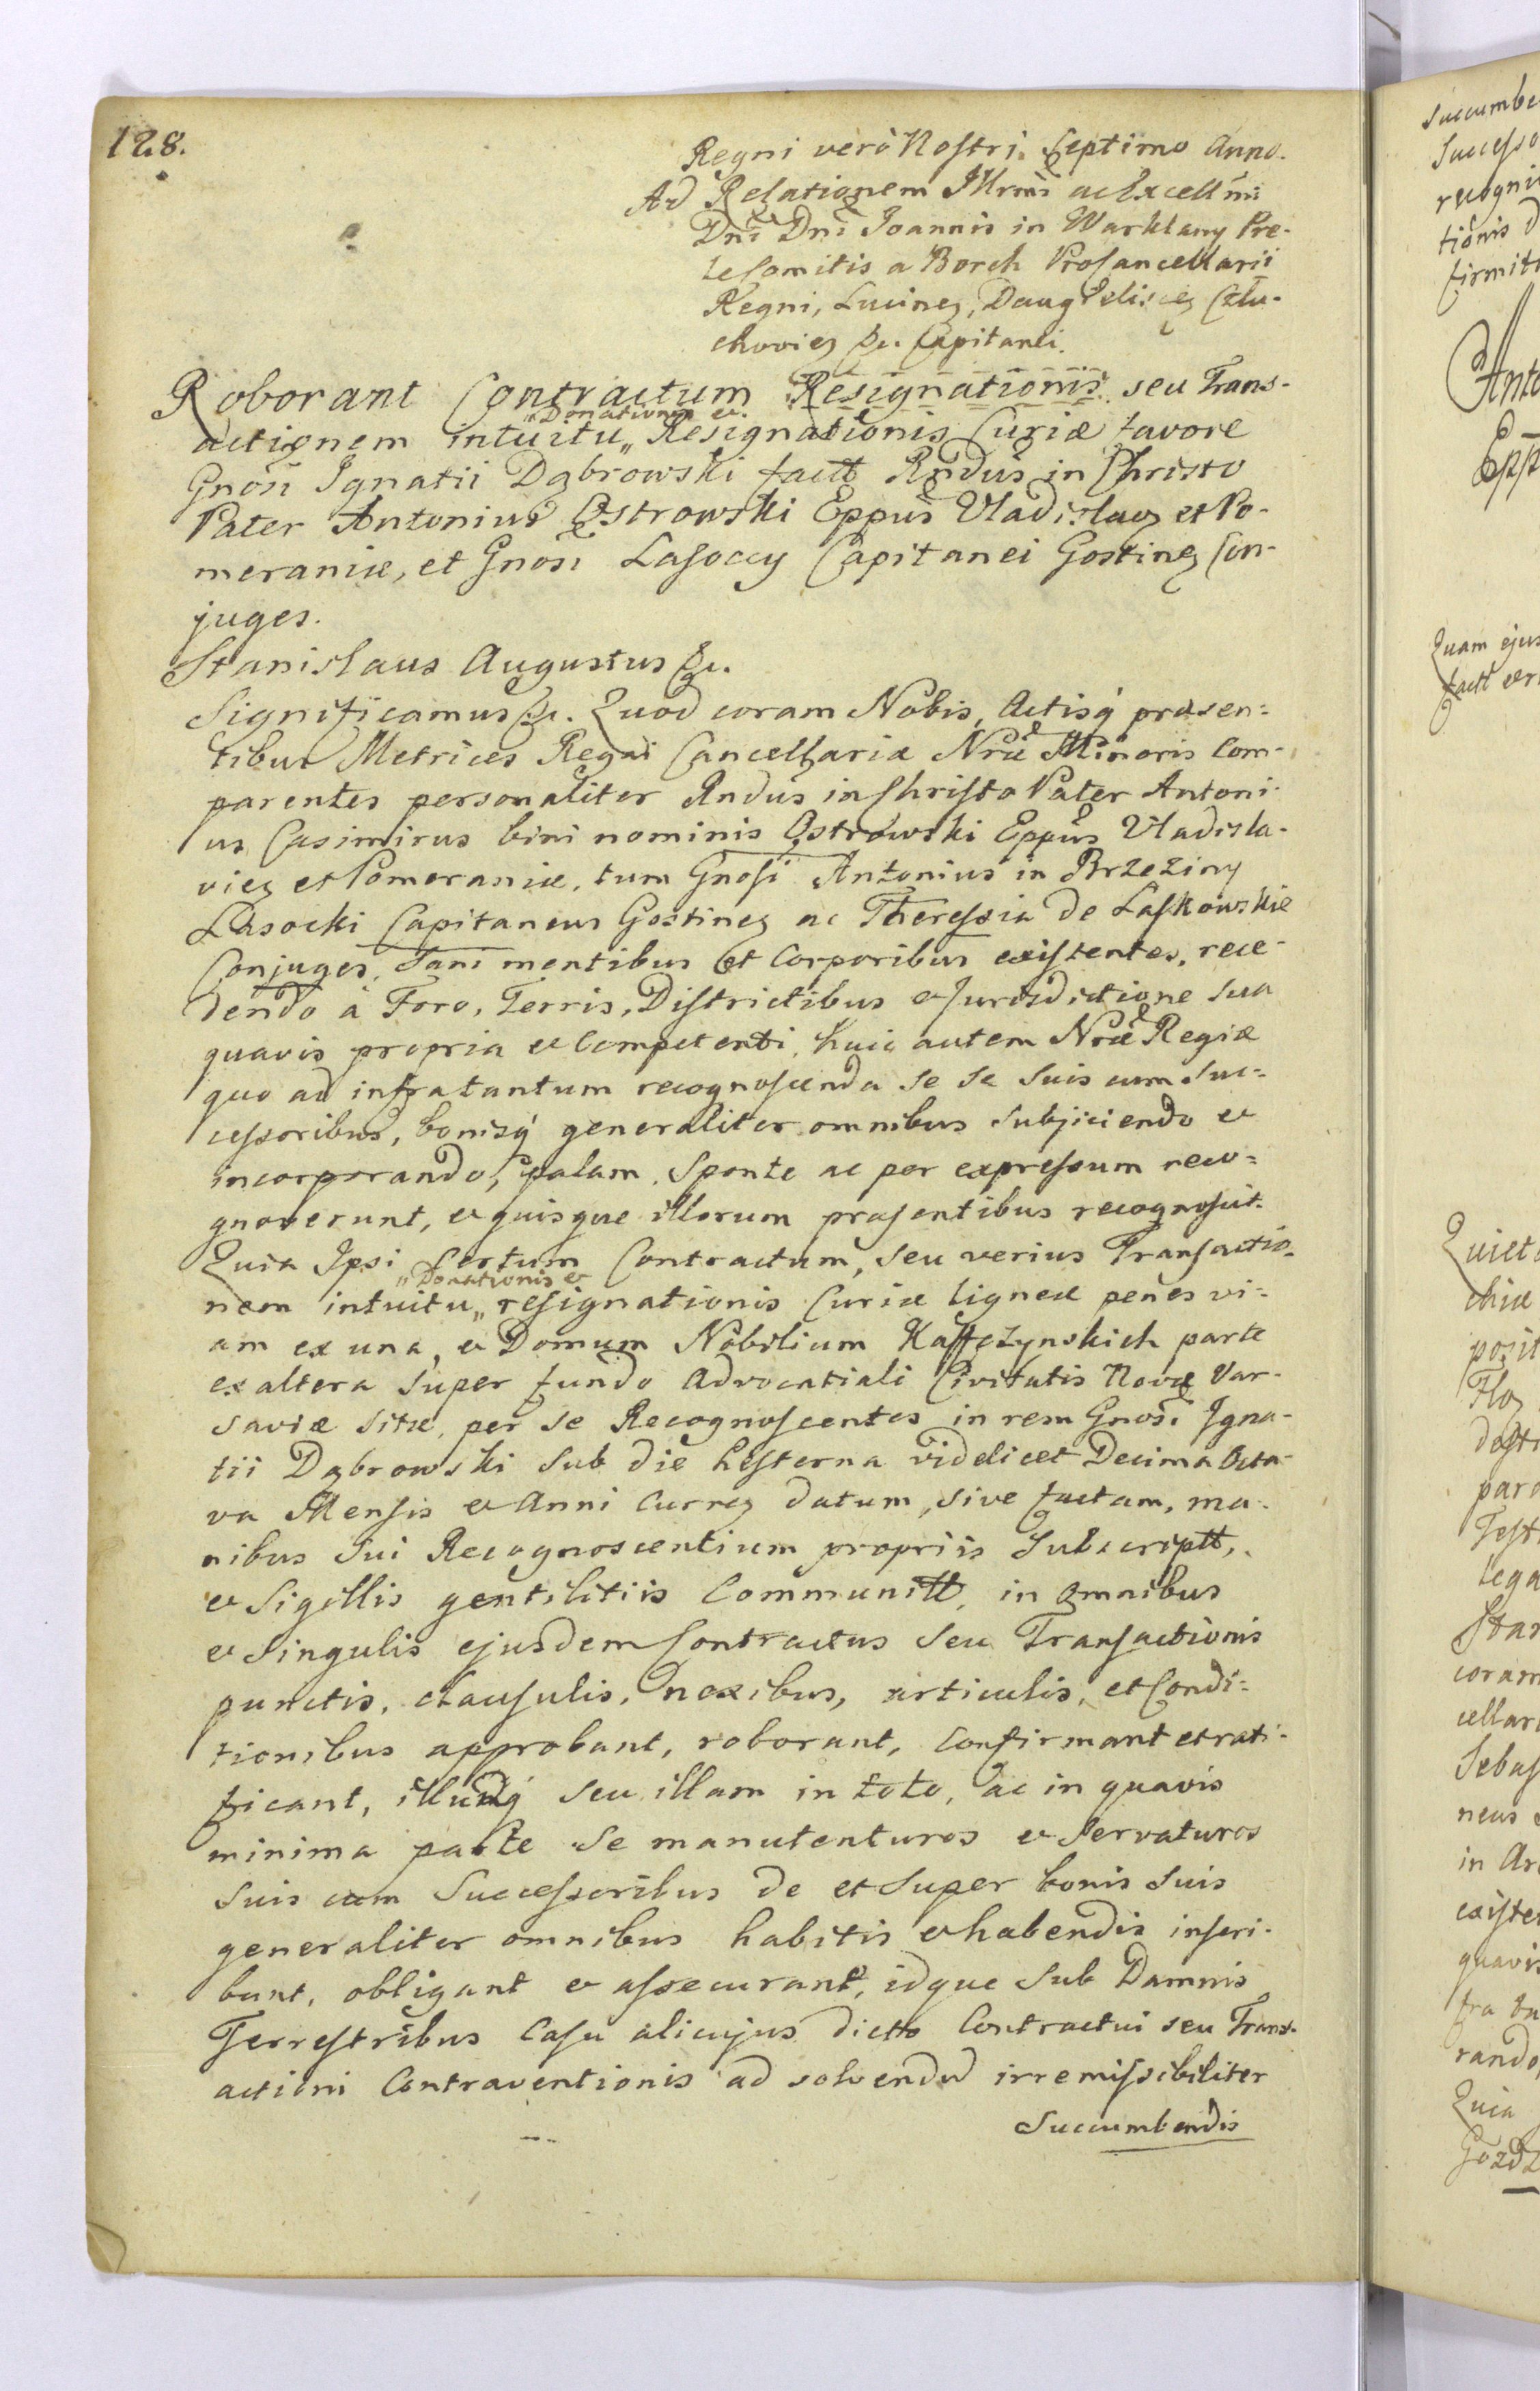 128.
Regni verò Nostri Septimo Anno.
Ad Relationem Illrmi ac Excellmi
Dni Dni Joannis in Warklany Pre-
te Comitis a Borch Procancellarii
Regni, Lucinen, Daug Człu-
chovien &c. Capitanei.
Roborant Contractum Resignationis seu Trans-
actionem intuitu „Donationis et„ Resignationis Curiæ favore
Gnosi Ignatii Dąbrowski factt Rndus in Christo
Pater Antonius Ostrowski Eppus Vladislav et Po-
meraniæ, et Gnosi Lasoccy Capitanei Gostinen Con-
juges.
Stanislaus Augustus &c.
Significamus &c. Quod coram Nobis, Actisq præsen-
tibus Metrices Regni Cancellariæ Nræ Minoris Com-
parentes personaliter Rndus in Christo Pater Antoni-
us Casimirus bini nominis Ostrowski Eppus Vladisla-
vien et Pomeraniæ, tum Gnosi Antonius in Brzeziny
Lasocki Capitaneus Gostinen ac Theressia de Laskowskie
Conjuges, Sani mentibus et Corporibus existentes, rece-
dendo à Foro, Terris, Districtibus et Jurisdictione sua
quavis propria et Competenti, huic autem Nræ Regiæ
quo ad infratantum recognoscenda se se suis cum Suc-
cessoribus, bonisq generaliter omnibus subjiciendo et
incorporando, palam, Sponte ac per expressum reco-
gnoverunt, et quisque illorum præsentibus recognoscit.
Quia Ipsi Certum Contractum, seu verius Transactio-
nem intuitu „Donationis et„ resignationis Curiæ ligneæ penes vi-
am ex una, et Domum Nobilium Kaffczynskich parte
ex altera super fundo Advocatiali Civitatis Novæ Var-
saviæ sitæ, per se Recognoscentes in rem Gnosi Igna-
tii Dąbrowski sub die hesterna videlicet Decima Octa-
va Mensis et Anni Curren datum, sive factam, ma-
nibus sui Recognoscentium propriis Subscriptt,
et Sigillis gentilitiis Communitt, in omnibus
et Singulis ejusdem Contractus seu Transactionis
punctis, clausulis, nexibus, articulis, et Condi-
tionibus approbant, roborant, Confirmant et rati-
ficant, illumq seu illam in toto, ac in quavis
minima parte se manutenturos et Servaturos
suis cum Successoribus de et Super bonis suis
generaliter omnibus habitis et habendis inscri-
bunt, obligant et assecurant, idque Sub Damnis
Terrestribus Casu alicujus dicto Contractui seu Trans-
actioni Contraventionis ad solvendu irremissibiliter
Succumbendis